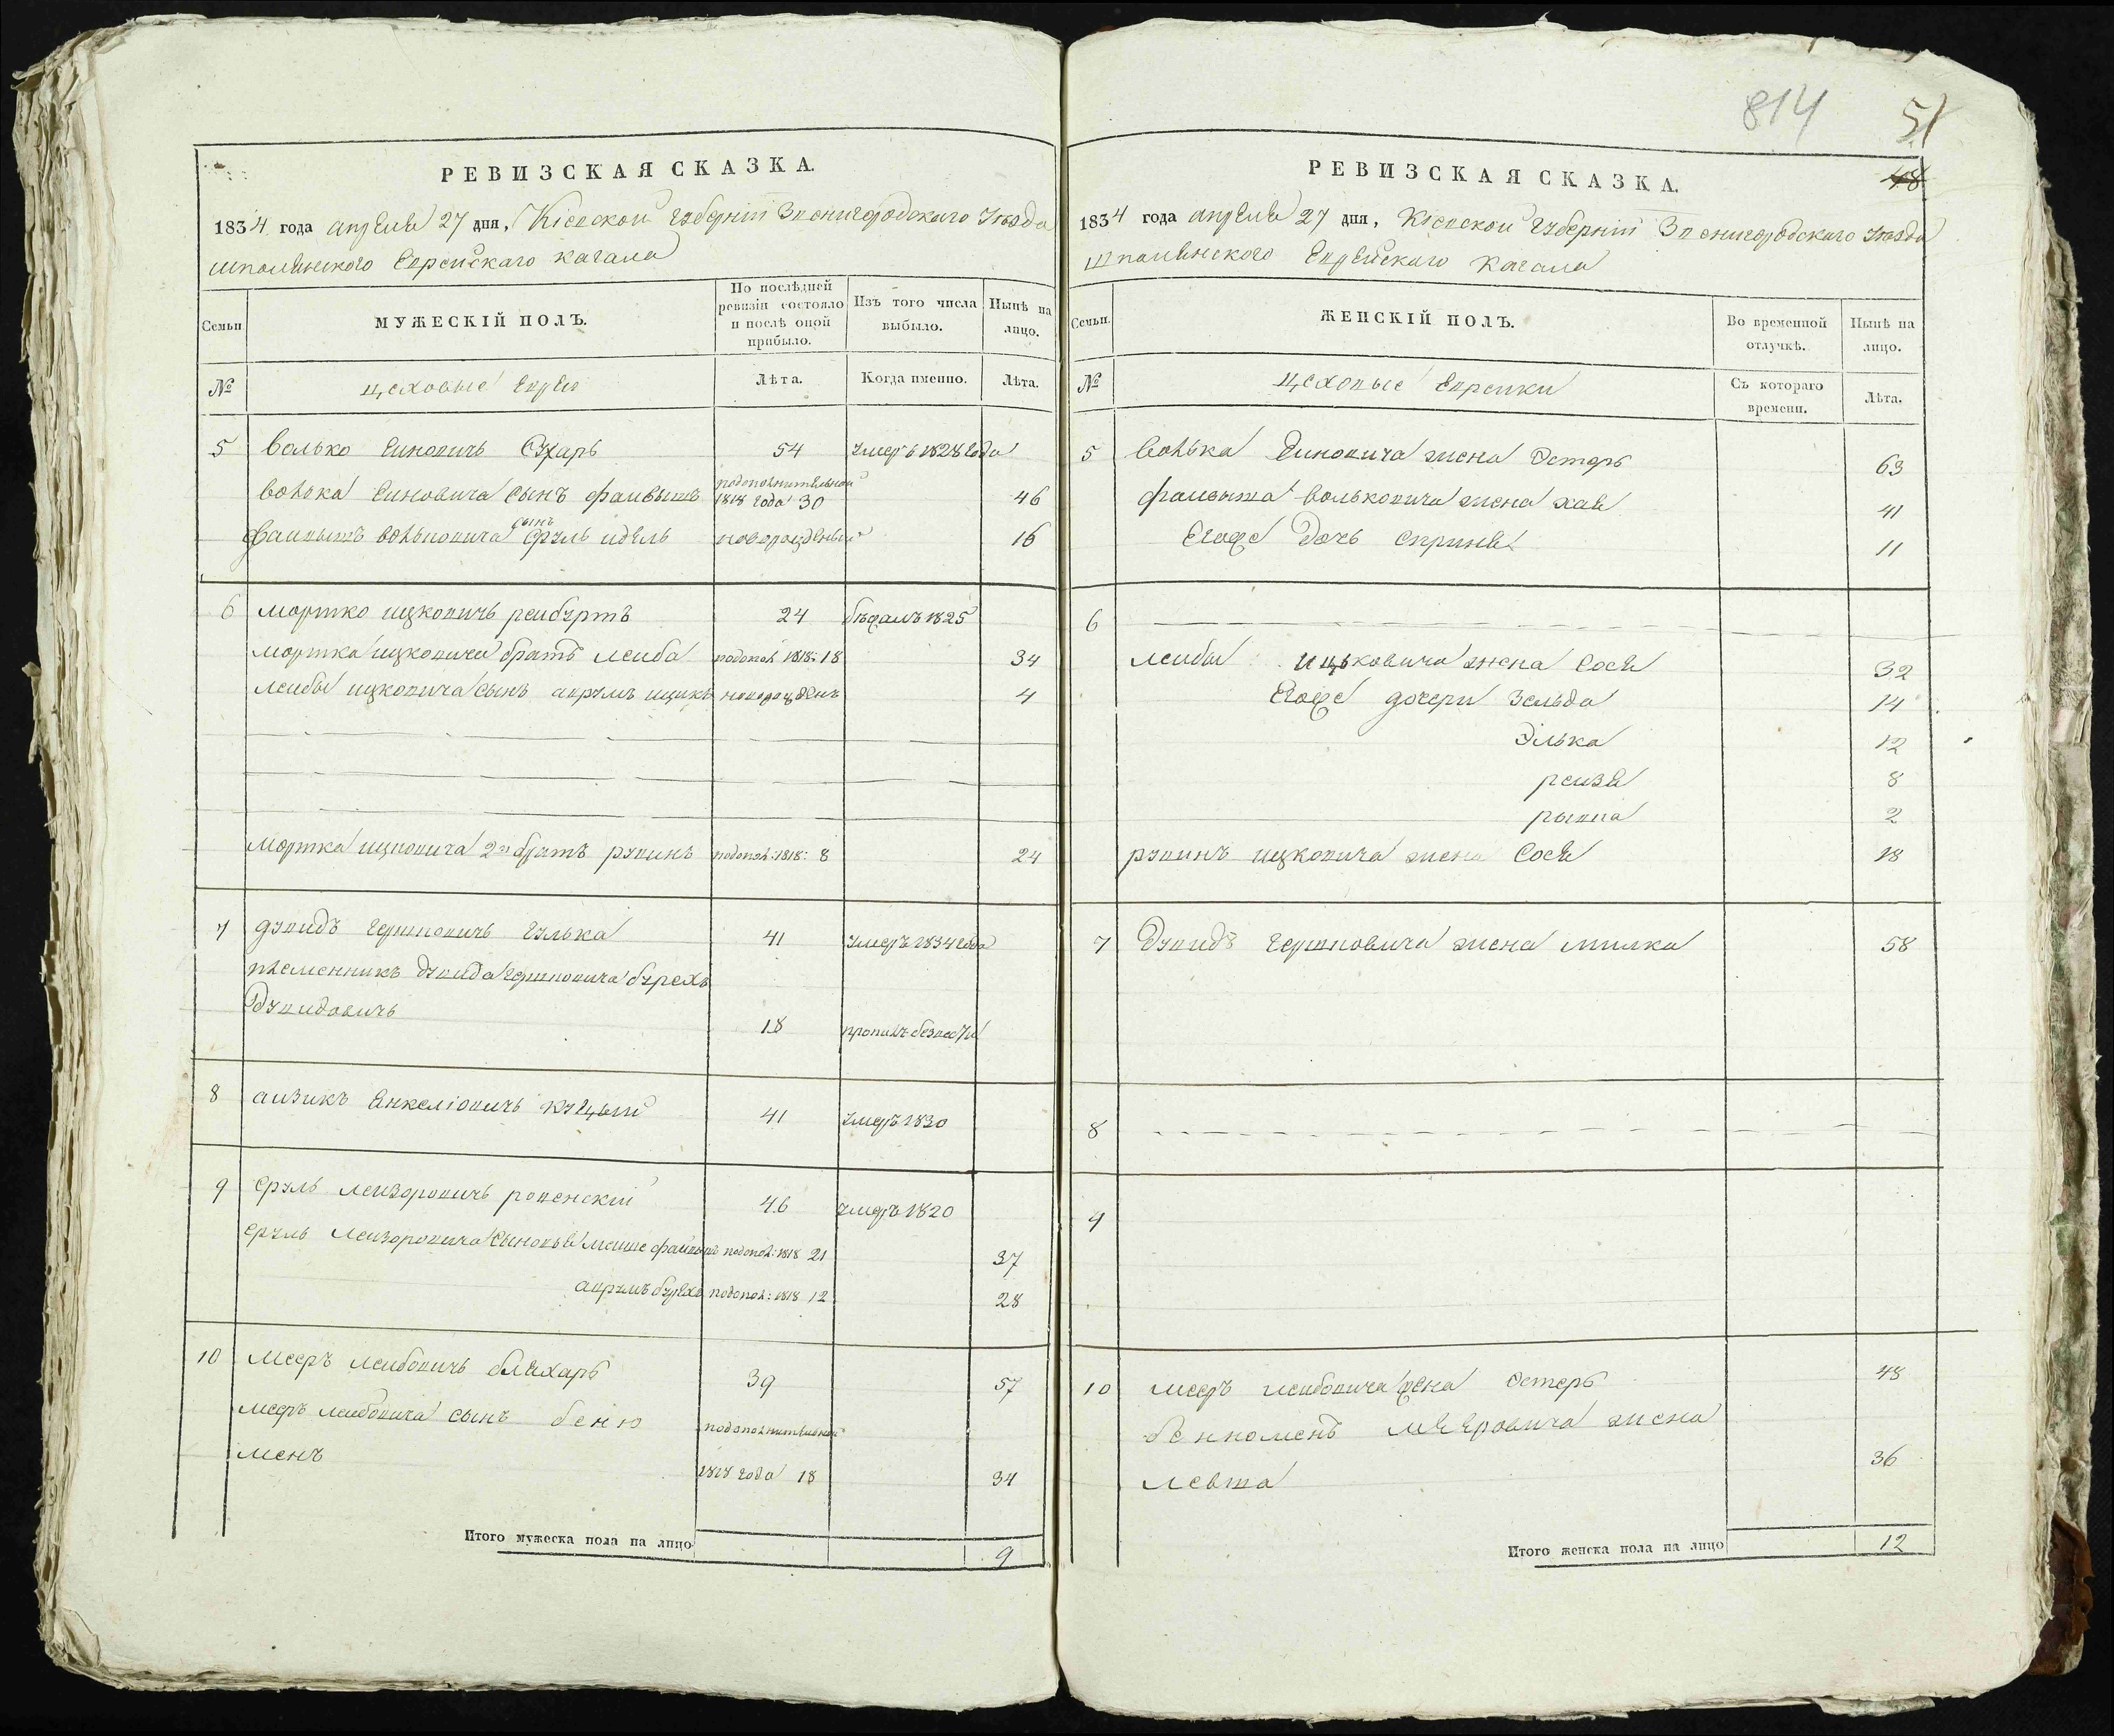 814 51
48
РЕВИЗСКАЯ СКАЗКА.
1834 года апреля 27 дня, Кіевской Губерніи Звенигородскаго Уѣзда
шполянского Еврейскаго кагала
Семьи МУЖЕСКІЙ ПОЛЪ. По послѣдней ревизіи состояло и послѣ оной прибыло. Изъ того числа выбыло. Нынѣ на лицо.
№ цеховые евреи Лѣта. Когда именно. Лѣта.
5 волько Еиновичь Сухарь 54 умеръ 1828 года
волька Еиновича сынъ фаивышъ подополнительной 1818 года 30 46
сынъ
фаивышъ вольковича Сруль идель новорожденый 16
6 мортко ицковичь реибуртъ 24 бѣжалъ 1825
мортка ицковича братъ леиба подопол 1818: 18 34
леибы ицковича сынъ аврумъ ицикъ новорожденъ 4
мортка ицковича 2й братъ рувинъ подопол: 1818: 8 24
7 дувидъ гершковичь гулька 41 умеръ 1834 года
племенникъ дувида гершковича бурехъ
Дувидовичь 18 пропалъ безвести
8 аизикъ Енкеліовичь куцый 41 умеръ 1830
9 сруль леизоровичь ровенскій 46 умеръ 1820
сруль леизоровича сыновья мошие фаивышъ подопол: 1818 21 37
аврумъ бурехъ подопол: 1818 12 28
10 мееръ леибовичь бляхарь 39 57
мееръ леибовича сынъ беню подополнительной
менъ 1818 года 18 34
Итого мужеска пола на лицо 9
РЕВИЗСКАЯ СКАЗКА.
1834 года апреля 27 дня, Кіевской Губерніи Звенигородскаго Уѣзда
Шполянского Еврейскаго Кагала
Семьи. ЖЕНСКІЙ ПОЛЪ. Во временной отлучкѣ. Нынѣ на лицо.
№ Цеховые Евреики Съ котораго времени. Лѣта.
5 Волька Еиновича жена Эстеръ 63
фаивыша вольковича жена хая 41
Егоже Дочь Сприня 11
6
леибы ицьковича жена Сося 32
Егоже дочери Зельда 14
Элька 12
реизя 8
рывка 2
рувинъ ицковича жена Сося 18
7 Дувидъ гершковича жена милка 58
8
9
10 мееръ леибовича жена Эстеръ 48
бенюменъ мееровича жена
левша 36
Итого женска пола на лицо 12